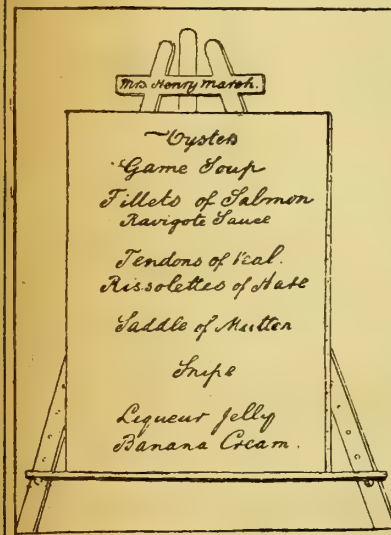 Mrs. Henry Marsh.
Oysters
Game Soup
Fillets of Salmon
Ravigote Sauce
Tendons of Veal.
Rissolettes of Hare
Saddle of Mutton
Snipe
Liqueur Jelly
Banana Cream.